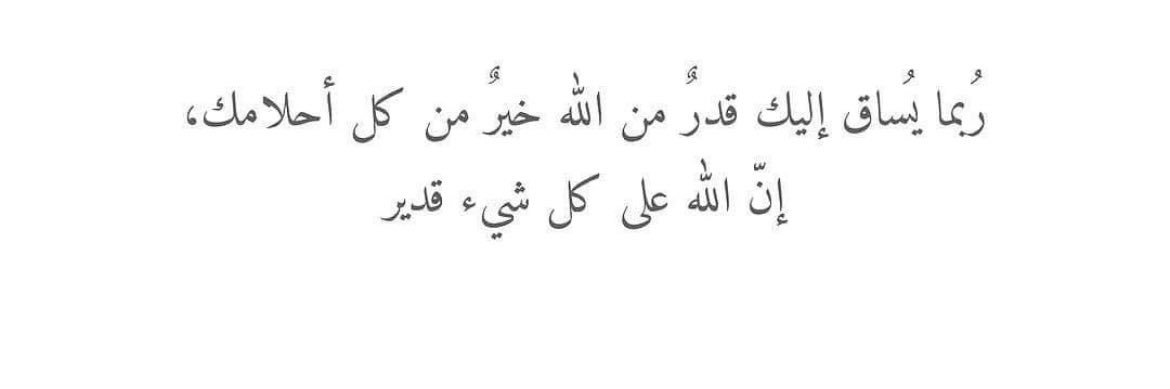 رُبما يُساق إليك قدرٌ من الله خيرٌ من كل أحلامك،
إنّ الله على كل شيء قدير